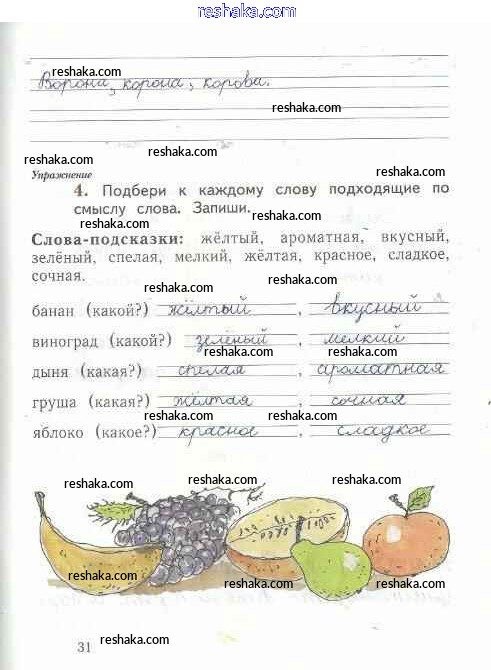 reshaka.com
reshaka.com
Ворона, корона, корова.
reshaka.com
reshaka.com
reshaka.com
Упражнение
reshaka.com
4. Подбери к каждому слову подходящие по
смыслу слова. Запиши.
reshaka.com
reshaka.com
Слова-подсказки: жёлтый, ароматная, вкусный,
зелёный, спелая, мелкий, жёлтая, красное, сладкое,
сочная.
reshaka.com
reshaka.com
банан (какой?) жёлтый, вкусный
reshaka.com
reshaka.com
виноград (какой?) зелёный, мелкий
reshaka.com
reshaka.com
дыня (какая?) спелая, ароматная
reshaka.com
reshaka.com
груша (какая?) жёлтая, сочная
reshaka.com
reshaka.com
яблоко (какое?) красное, сладкое
reshaka.com
reshaka.com
reshaka.com
reshaka.com
reshaka.com
reshaka.com
reshaka.com
reshaka.com
31 reshaka.com
reshaka.com